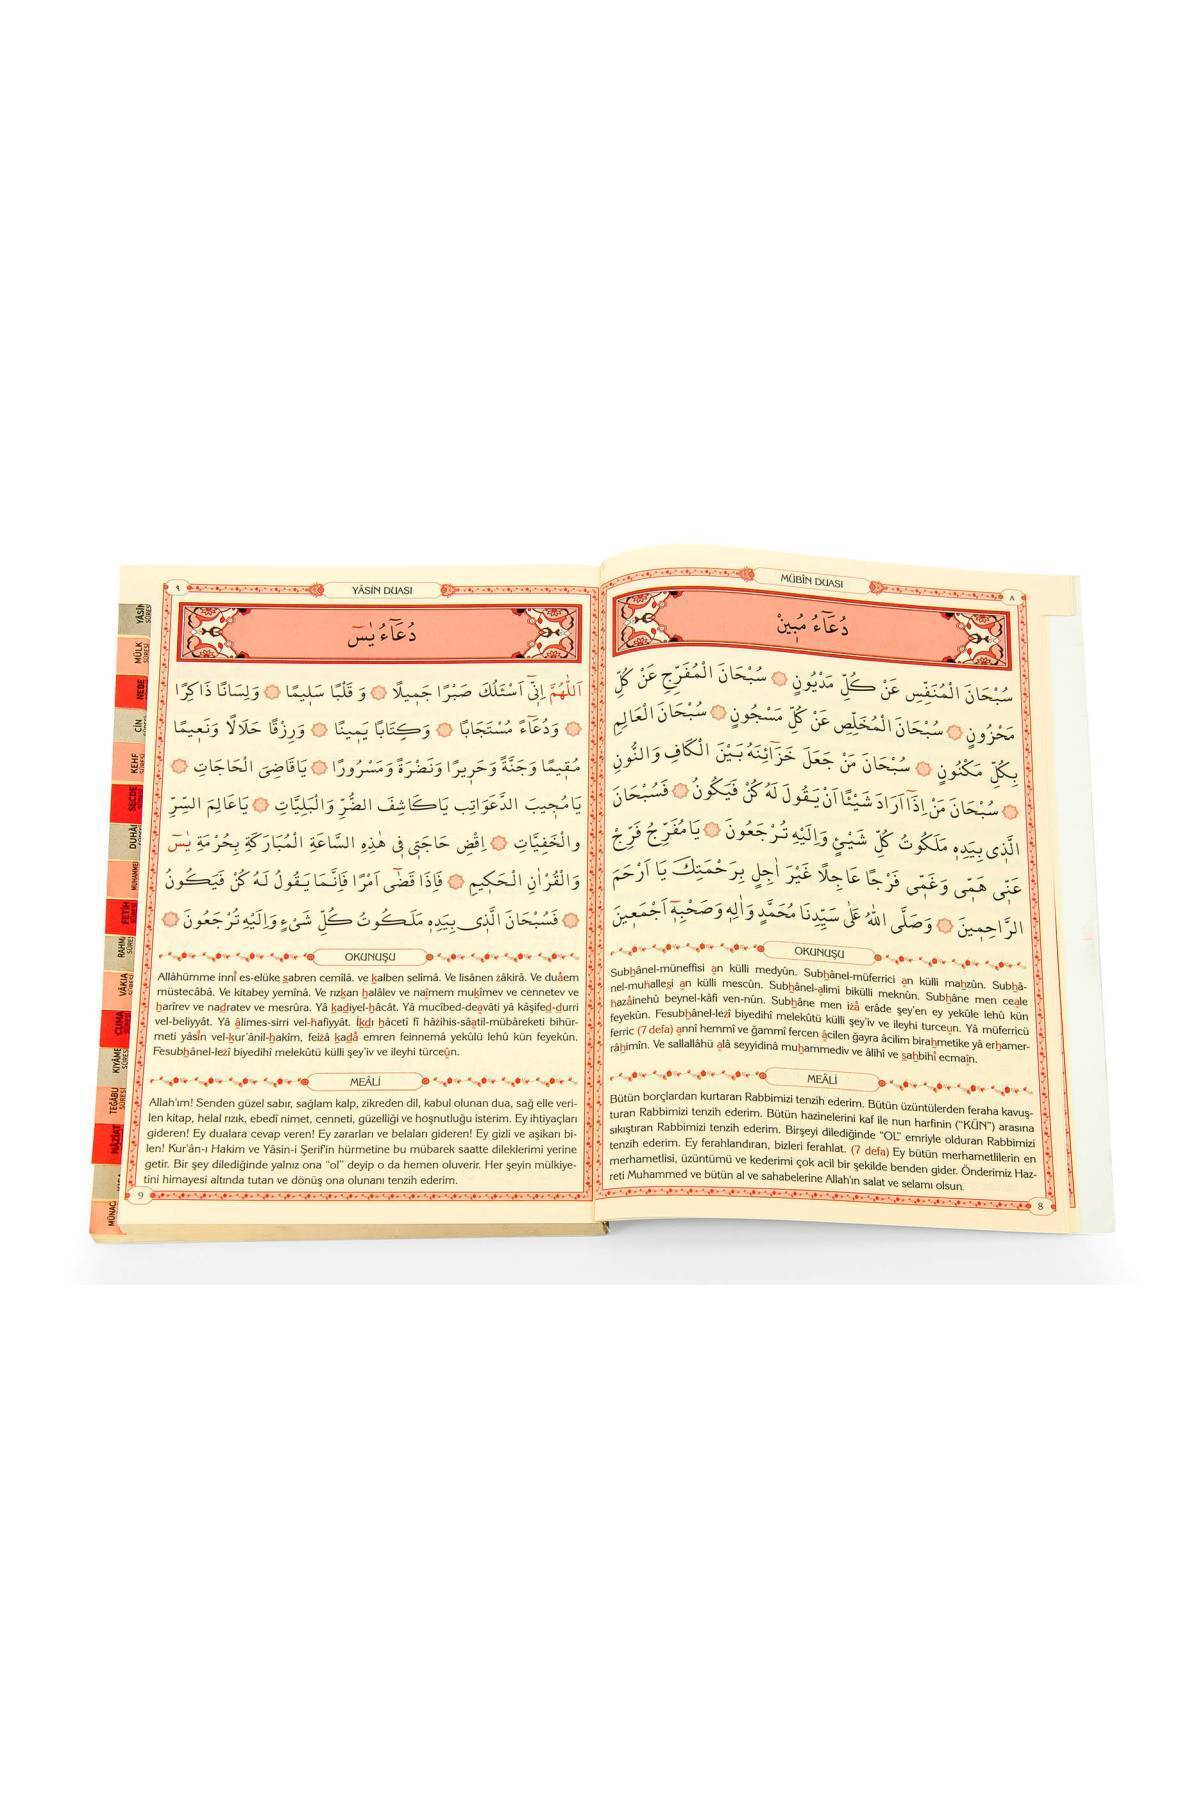 MÜBÎN DUASI
٨
دُعَاءُ مُبِينْ
سُبْحَانَ الْمُنَفِّسِ عَنْ كُلِّ مَدْيُونٍ سُبْحَانَ الْمُفَرِّجِ عَنْ كُلِّ
مَحْزُونٍ سُبْحَانَ الْمُخَلِّصِ عَنْ كُلِّ مَسْجُونٍ سُبْحَانَ الْعَالِمِ
بِكُلِّ مَكْنُونٍ سُبْحَانَ مَنْ جَعَلَ خَزَائِنَهُ بَيْنَ الْكَافِ وَالنُّونِ
سُبْحَانَ مَنْ اِذَا اَرَادَ شَيْئًا اَنْ يَقُولَ لَهُ كُنْ فَيَكُونُ فَسُبْحَانَ
الَّذِى بِيَدِهِ مَلَكُوتُ كُلِّ شَيْئٍ وَاِلَيْهِ تُرْجَعُونَ يَا مُفَرِّجُ فَرِّجْ
عَنِّى هَمِّى وَغَمِّى فَرْجًا عَاجِلًا غَيْرَ اٰجِلٍ بِرَحْمَتِكَ يَا اَرْحَمَ
الرَّاحِمِينَ وَصَلَّى اللهُ عَلٰى سَيِّدِنَا مُحَمَّدٍ وَاٰلِهِ وَصَحْبِهِ اَجْمَعِينَ
OKUNUŞU
Subhânel-müneffisi an külli medyûn. Subhânel-müferrici an külli mahzûn. Subhâ-
nel-muhallesi an külli mescûn. Subhânel-alimi bikülli meknûn. Subhâne men ceale
hazâinehû beynel-kâfi ven-nûn. Subhâne men izâ erâde şey'en ey yekûle lehû kün
feyekûn. Fesubhânel-lezî biyedihî melekûtü külli şey'iv ve ileyhi turceun. Yâ müferricü
ferric (7 defa) annî hemmî ve ğammî fercen âcilen ğayra âcilim birahmetike yâ erhamer-
râhimîn. Ve sallallahü alâ seyyidinâ muhammediv ve âlihî ve sahbihî ecmaîn.
MEÂLİ
Bütün borçlardan kurtaran Rabbimizi tenzih ederim. Bütün üzüntülerden feraha kavuş-
turan Rabbimizi tenzih ederim. Bütün hazinelerini kaf ile nun harfinin (“KÜN”) arasına
sıkıştıran Rabbimizi tenzih ederim. Birşeyi dilediğinde “OL” emriyle olduran Rabbimizi
tenzih ederim. Ey ferahlandıran, bizleri ferahlat. (7 defa) Ey bütün merhametlilerin en
merhametlisi, üzüntümü ve kederimi çok acil bir şekilde benden gider. Önderimiz Haz-
reti Muhammed ve bütün al ve sahabelerine Allah'ın salat ve selamı olsun.
8
٩
YÂSİN DUASI
دُعَاءُ يٰسٓ
اَللّٰهُمَّ اِنِّى اَسْئَلُكَ صَبْرًا جَمِيلًا وَ قَلْبًا سَلِيمًا وَلِسَانًا ذَاكِرًا
وَدُعَاءً مُسْتَجَابًا وَكِتَابًا يَمِينًا وَرِزْقًا حَلَالًا وَنَعِيمًا
مُقِيمًا وَجَنَّةً وَحَرِيرًا وَنَضْرَةً وَمَسْرُورًا يَا قَاضِىَ الْحَاجَاتِ
يَا مُجِيبَ الدَّعَوَاتِ يَا كَاشِفَ الضُّرِّ وَالْبَلِيَّاتِ يَا عَالِمَ السِّرِّ
والْخَفِيَّاتِ اِقْضِ حَاجَتِى فِى هٰذِهِ السَّاعَةِ الْمُبَارَكَةِ بِحُرْمَةِ يٰسٓ
وَالْقُرْاٰنِ الْحَكِيمِ فَاِذَا قَضٰى اَمْرًا فَاِنَّمَا يَقُولُ لَهُ كُنْ فَيَكُونُ
فَسُبْحَانَ الَّذِى بِيَدِهِ مَلَكُوتُ كُلِّ شَىْءٍ وَاِلَيْهِ تُرْجَعُونَ
OKUNUŞU
Allâhümme innî es-elüke sabren cemîlâ. ve kalben selîmâ. Ve lisânen zâkirâ. Ve duâem
müstecâbâ. Ve kitabey yemînâ. Ve rızkan halâlev ve naîmem mukîmev ve cennetev ve
harîrev ve nadratev ve mesrûra. Yâ kadiyel-hâcât. Yâ mucîbed-deavâti yâ kâşifed-durri
vel-beliyyât. Yâ âlimes-sirri vel-hafiyyât. İkdı hâcetî fî hâzihis-sâatil-mübâreketi bihür-
meti yâsîn vel-kur'ânil-hakîm, feizâ kadâ emren feinnemâ yekûlü lehû kün feyekûn.
Fesubhânel-lezî biyedihî melekûtü külli şey'iv ve ileyhi türceûn.
MEÂLİ
Allah'ım! Senden güzel sabır, sağlam kalp, zikreden dil, kabul olunan dua, sağ elle veri-
len kitap, helal rızık, ebedî nimet, cenneti, güzelliği ve hoşnutluğu isterim. Ey ihtiyaçları
gideren! Ey dualara cevap veren! Ey zararları ve belaları gideren! Ey gizli ve aşikarı bi-
len! Kur'ân-ı Hakim ve Yâsin-i Şerif'in hürmetine bu mübarek saatte dileklerimi yerine
getir. Bir şey dilediğinde yalnız ona “ol” deyip o da hemen oluverir. Her şeyin mülkiye-
tini himayesi altında tutan ve dönüş ona olunanı tenzih ederim.
9
YÂSİN
SÛRESİ
MÜLK
SÛRESİ
NEBE
CİN
KEHF
SÛRESİ
SECDE
DUHÂ
FETİH
VÂKIA
CUMA
NÂZİAT